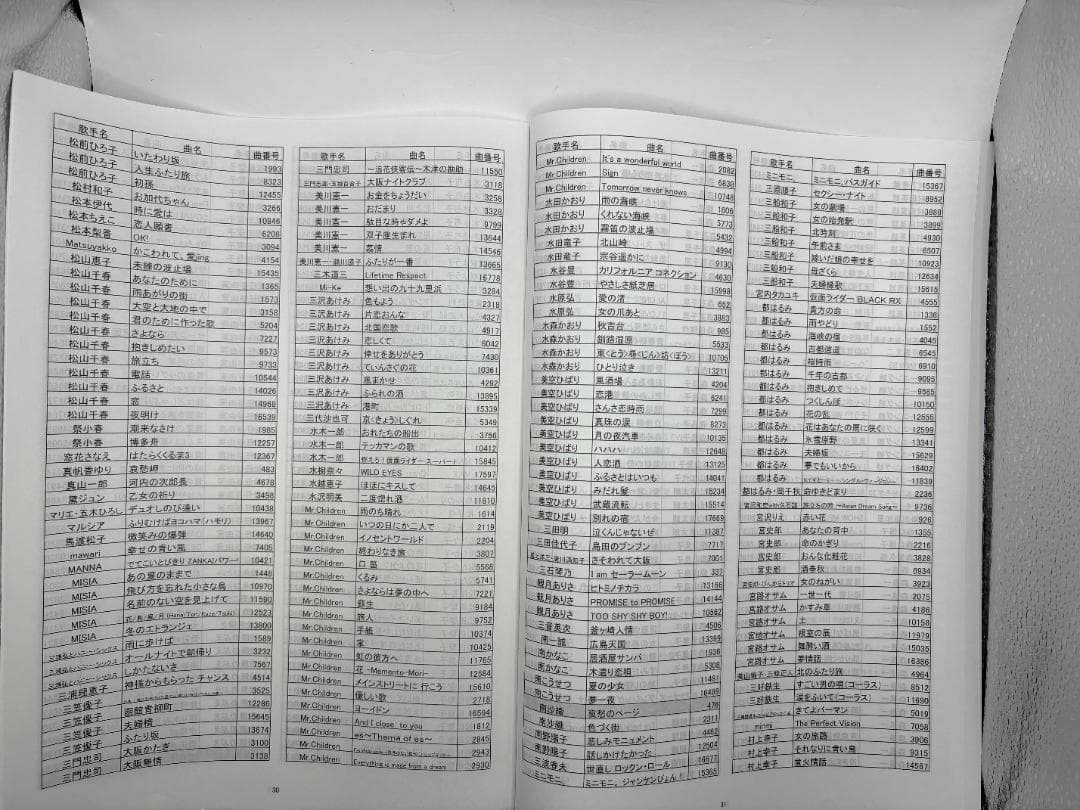 歌手名 曲名 曲番号
松前ひろ子 いたわり坂 1993
松前ひろ子 人生ふたり旅 8323
松前ひろ子 初孫 12455
松村和子 お加代ちゃん 3266
松本伊代 時に愛は 10846
松本ちえこ 恋人願書 6208
松本梨香 OK! 3094
Matsuyakko かこわれて、愛jing 4154
松山恵子 未練の波止場 15435
松山千春 あなたのために 1365
松山千春 雨あがりの街 1573
松山千春 大空と大地の中で 3158
松山千春 君のために作った歌 5204
松山千春 さよなら 7227
松山千春 抱きしめたい 9573
松山千春 旅立ち 9733
松山千春 電話 10544
松山千春 ふるさと 14026
松山千春 恋 14968
松山千春 夜明け 16539
祭小春 潮来なさけ 1985
祭小春 博多舟 12257
窓花さなえ はたらくくるま3 12367
真帆香ゆり 哀愁岬 483
真山一郎 河内の次郎長 4678
黛ジュン 乙女の祈り 3498
マリエ・五木ひろし デュオしのび逢い 10438
マルシア ふりむけばヨコハマ(ハモリ) 13967
馬渡松子 微笑みの爆弾 14640
mawari 幸せの青い風 7405
MANNA でてこいとびきり ZANKAIパワー! 10421
MISIA あの夏のままで 1448
MISIA 飛び方を忘れた小さな鳥 10970
MISIA 名前のない空を見上げて 11590
MISIA 12523
MISIA 冬のエトランジェ 13800
雨に歩けば 1589
オールナイトで朝帰り 3232
しかたないさ 7567
三浦理恵子 神様からもらった チャンス 4514
三笠優子 3525
三笠優子 函館青柳町 12286
三笠優子 夫婦橋 15645
三笠優子 ふたり坂 13674
三門忠司 大阪かたぎ 3100
三門忠司 大阪無情 3138
30
歌手名 曲名 曲番号
三門忠司 ~浪花侠客伝~木津の勘助 11550
大阪ナイトクラブ 3118
美川憲一 お金をちょうだい 3258
美川憲一 おだまり 3328
美川憲一 駄目な時ゃダメよ 9799
美川憲一 双子座生まれ 13644
美川憲一 慕情 14546
ふたりが一番 13665
三木道三 Lifetime Respect 16778
Mi-Ke 想い出の九十九里浜 3284
三沢あけみ 色もよう 2318
三沢あけみ 片恋おんな 4327
三沢あけみ 北国恋歌 4917
三沢あけみ 恋しくて 6042
三沢あけみ 倖せをありがとう 7430
三沢あけみ てぃんさぐの花 10361
三沢あけみ 風まかせ 4282
三沢あけみ ふられの酒 13895
三沢あけみ 港町 15339
三代沙也可 京(きょう)しぐれ 5349
水木一郎 おれたちの船出 3756
水木一郎 テッカマンの歌 10412
水木一郎 燃えろ!仮面ライダー・スーパー1 15845
水樹奈々 WILD EYES 17597
水越恵子 ほほにキスして 14645
水沢明美 二度惚れ酒 11810
Mr.Children 雨のち晴れ 1614
Mr.Children いつの日にか二人で 2119
Mr.Children イノセントワールド 2204
Mr.Children 終わりなき旅 3807
Mr.Children 口笛 5568
Mr.Children くるみ 5741
Mr.Children さよならは夢の中へ 7221
Mr.Children 蘇生 9184
Mr.Children 旅人 9752
Mr.Children 手紙 10374
Mr.Children 10425
Mr.Children 虹の彼方へ 11765
Mr.Children 花 -Memento-Mori- 12584
Mr.Children メインストリートに行こう 15610
Mr.Children 優しい歌 2716
Mr.Children ヨーイドン 16594
Mr.Children And I close to you 1812
Mr.Children es~Theme of es~ 2845
Mr.Children 2943
Mr.Children Everything is made from a dream 2930
歌手名 曲名 曲番号
Mr.Children It's a wonderful world 2082
Mr.Children Sign 6839
Mr.Children Tomorrow never knows 10748
水田かおり 雨の海峡 1606
水田かおり くれない海峡 5773
水田かおり 霧笛の波止場 5432
水田竜子 北山崎 4994
水田竜子 宗谷遥かに 9130
水谷豊 カリフォルニア コネクション 4630
水谷豊 やさしさ紙芝居 15998
水原弘 愛の渚 652
水原弘 女の爪あと 3883
水森かおり 秋吉台 985
水森かおり 釧路湿原 5533
水森かおり 東(とう)尋(じん)坊(ぼう) 10705
水森かおり ひとり泣き 13211
美空ひばり 風酒場 4204
美空ひばり 恋港 6241
美空ひばり さんさ恋時雨 7299
美空ひばり 真珠の涙 8273
美空ひばり 月の夜汽車 10135
美空ひばり ハハハ 12648
美空ひばり 人恋酒 13125
美空ひばり ふるさとはいつも 14041
美空ひばり みだれ髪 15234
美空ひばり 武蔵流転 15514
美空ひばり 別れの宿 17669
三田明 泣くんじゃないぜ 11387
三田佳代子 島田のブンブン 7717
さそわれて大阪 7001
三石琴乃 I am セーラームーン 337
観月ありさ ヒトミノチカラ 13166
観月ありさ PROMISE to PROMISE 14144
観月ありさ TOO SHY SHY BOY! 10562
三音英次 釜ヶ崎人情 4506
南一誠 広島天国 13389
南かなこ 居酒屋サンバ 1936
南かなこ 木遣り恋唄 5308
南こうせつ 夏の少女 11481
南こうせつ 夢一夜 16409
南沙織 哀愁のページ 476
南沙織 色づく街 2311
南野陽子 悲しみモニュメント 4462
南野陽子 話しかけたかった 12504
三波春夫 世直し ロックン・ロール 16671
ミニモニ。 ミニモニ。ジャンケンぴょん! 15365
歌手名 曲名 曲番号
ミニモニ。 ミニモニ。バスガイド 15367
三原順子 セクシー・ナイト 8952
三船和子 女の劇場 3888
三船和子 女の始発駅 3899
三船和子 北時刻 4930
三船和子 午前さま 6507
三船和子 嫁いだ娘の幸せを 10923
三船和子 母ざくら 12634
三船和子 夫婦絶歌 15615
宮内タカユキ 仮面ライダー BLACK RX 4555
都はるみ 貴方の命 1336
都はるみ 雨やどり 1552
都はるみ 海峡の宿 4045
都はるみ 古都逍遥 6545
都はるみ 桜時雨 6910
都はるみ 千年の古都 9095
都はるみ 抱きしめて 9565
都はるみ つくしんぼ 10150
都はるみ 花の乱 12655
都はるみ 花はあなたの肩に咲く 12599
都はるみ 氷雪原野 13341
都はるみ 夫婦坂 15629
都はるみ 夢でもいいから 16402
11839
都はるみ・岡千秋 命ゆきどまり 2236
旅立ちの詩 ~Asian Dream Song~ 9736
宮沢りえ 赤い花 926
宮史郎 あなたの背中 1355
宮史郎 命のかぎり 2216
宮史郎 おんな化粧花 3828
宮史郎 酒春秋 6934
女のねがい 3923
宮路オサム 一世一代 2075
宮路オサム かすみ草 4186
宮路オサム 土 10158
宮路オサム 根室の扉 11979
宮路オサム 舞酔い酒 15035
宮路オサム 夢情話 16386
北のふたり旅 4964
三好鉄生 すごい男の唄(コーラス) 8512
三好鉄生 涙をふいて(コーラス) 11990
きてよパーマン 5019
mirmi The Perfect Vision 7058
村上幸子 女の旅路 3906
村上幸子 それなりに青い鳥 9315
村上幸子 蛍火情話 14567